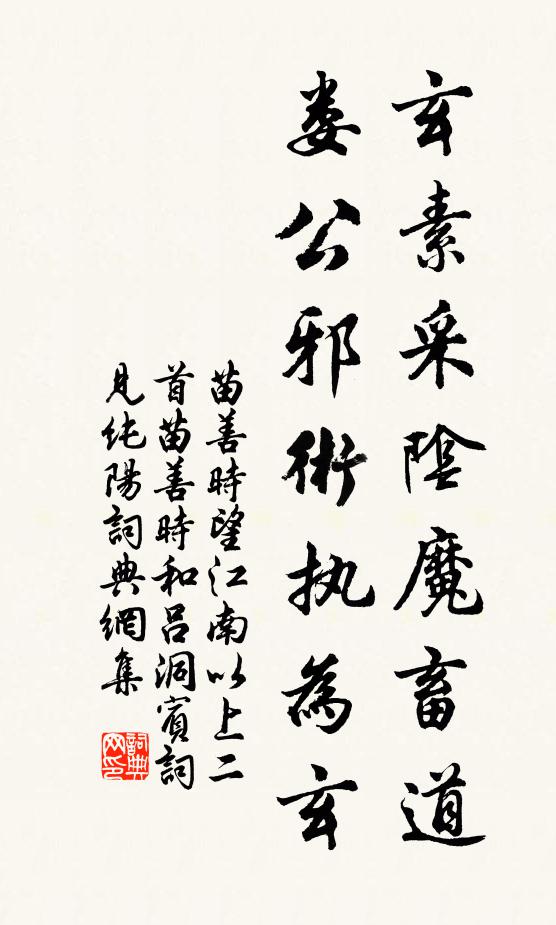 玄素采陰魔畜道
娄公邪術执為玄
苗善時望江南以上二
首苗善時和吕洞賓詞
見纯陽詞典網集
詞典
网印